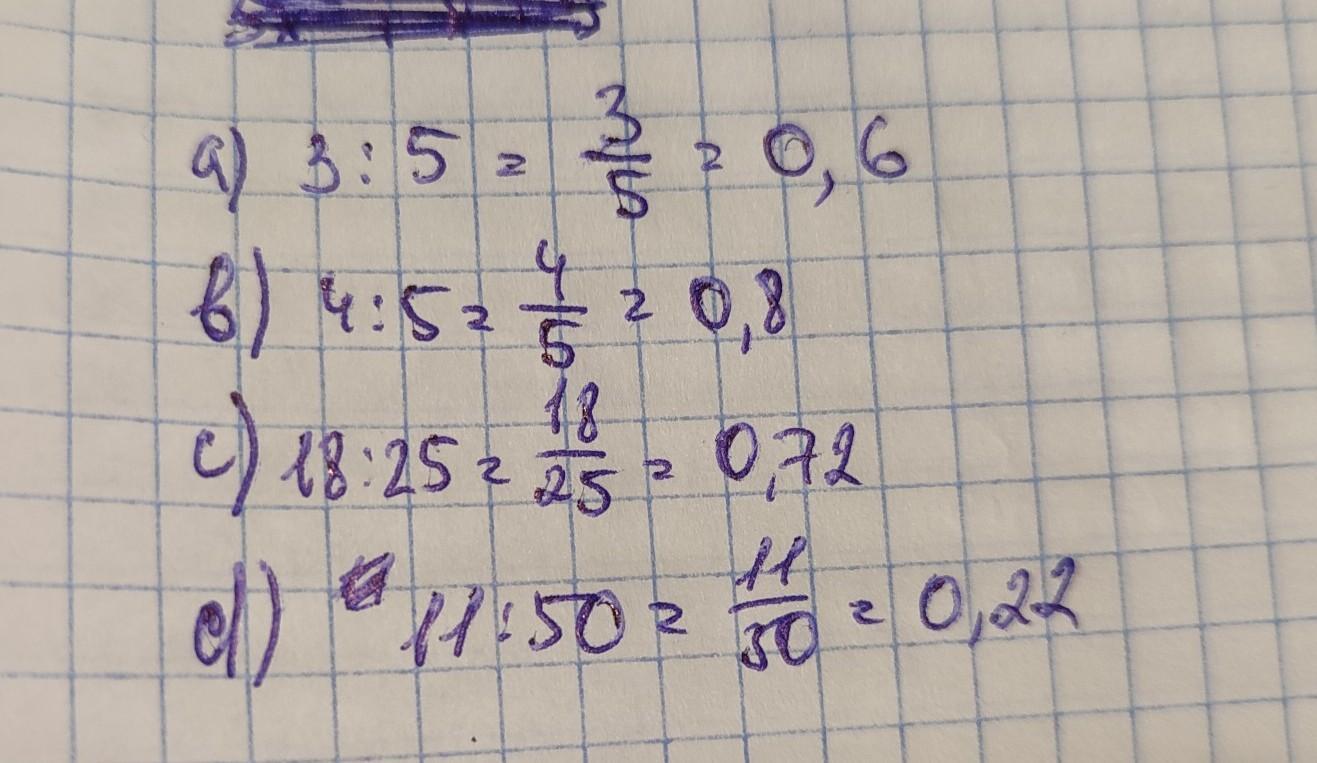 a) 3 : 5 = 3/5 = 0,6
b) 4 : 5 = 4/5 = 0,8
c) 18 : 25 = 18/25 = 0,72
d) 11 : 50 = 11/50 = 0,22